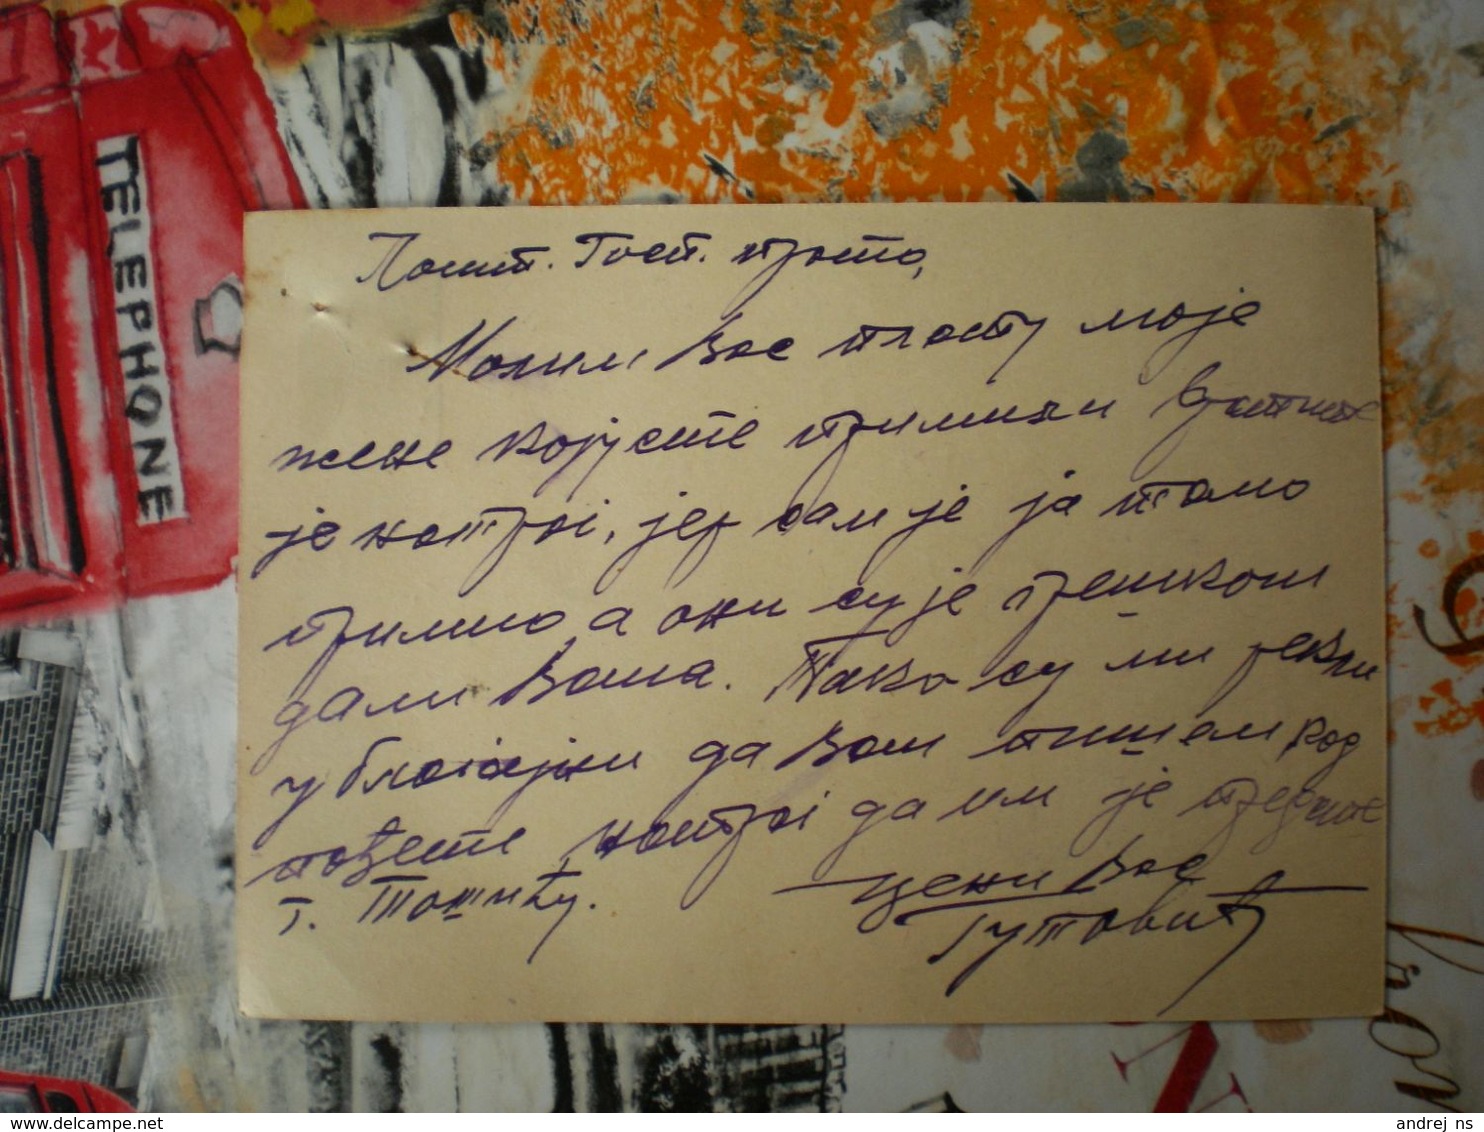 TELEPHONE
Пошт. Госп. прото,
Молим Вас плату моје
жене коју сте примили вратите
је натраг, јер сам је ја тамо
примио, а они су је грешком
дали Вама. Тако су ми рекли
у благајни да Вам пишем кад
пођете натраг да им је предате
г. Тошићу.
цени Вас
Гутовић
andrej_ns